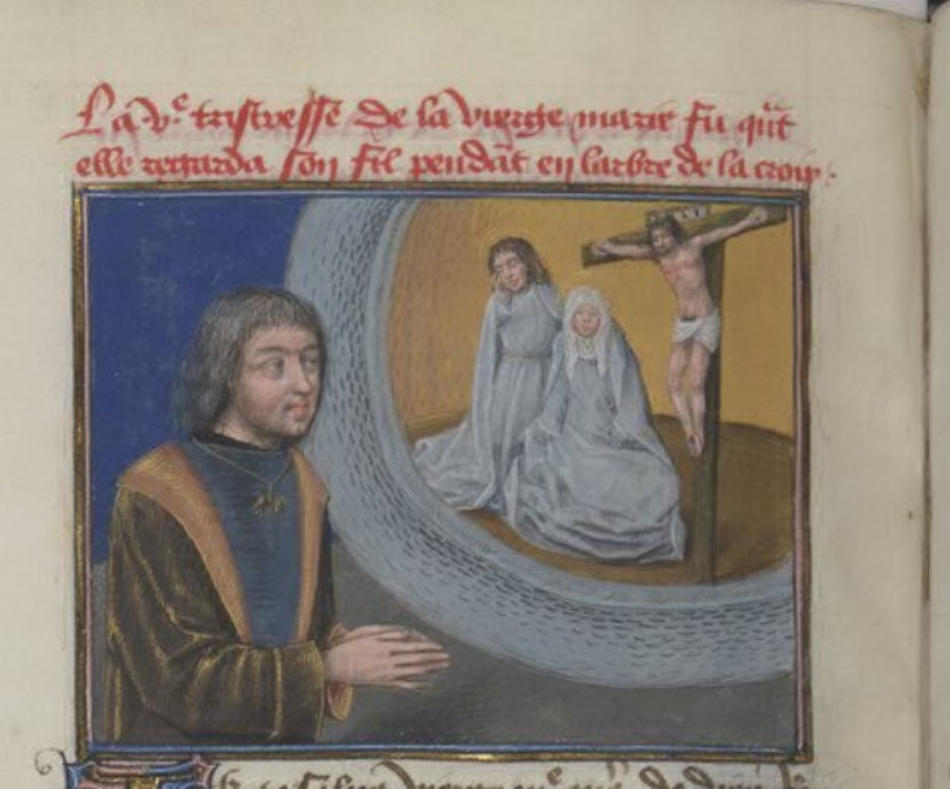 La v^e tristresse de la vierge marie fu qũt
elle regarda son fil pendãt en larbre de la croix.